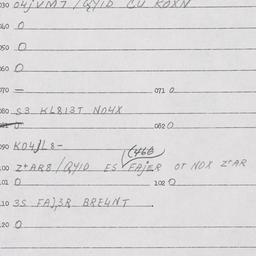 030 04JVM7 / QYID CU KOXN
040 0
050 0
060 0
070 — 071 0
080 S3 KL813T NO4X
081 0 082 0
090 KO4JL8-
(466
100 Z+AR8 / QYID ES FAJER OT NOX Z+AR
101 0 102 0
110 3S FAJ,3R BRE4NT
120 0